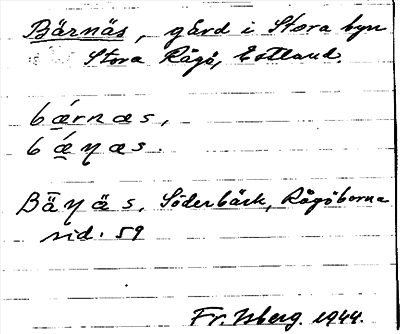 Bärnäs, gård i Stora byn
Stora Rågö, Estland.
bǽrnæs,
bǽɳæs.
Bäɳäs, Söderbäck, Rågöborna
sid. 59
Fr. Isberg. 1944.